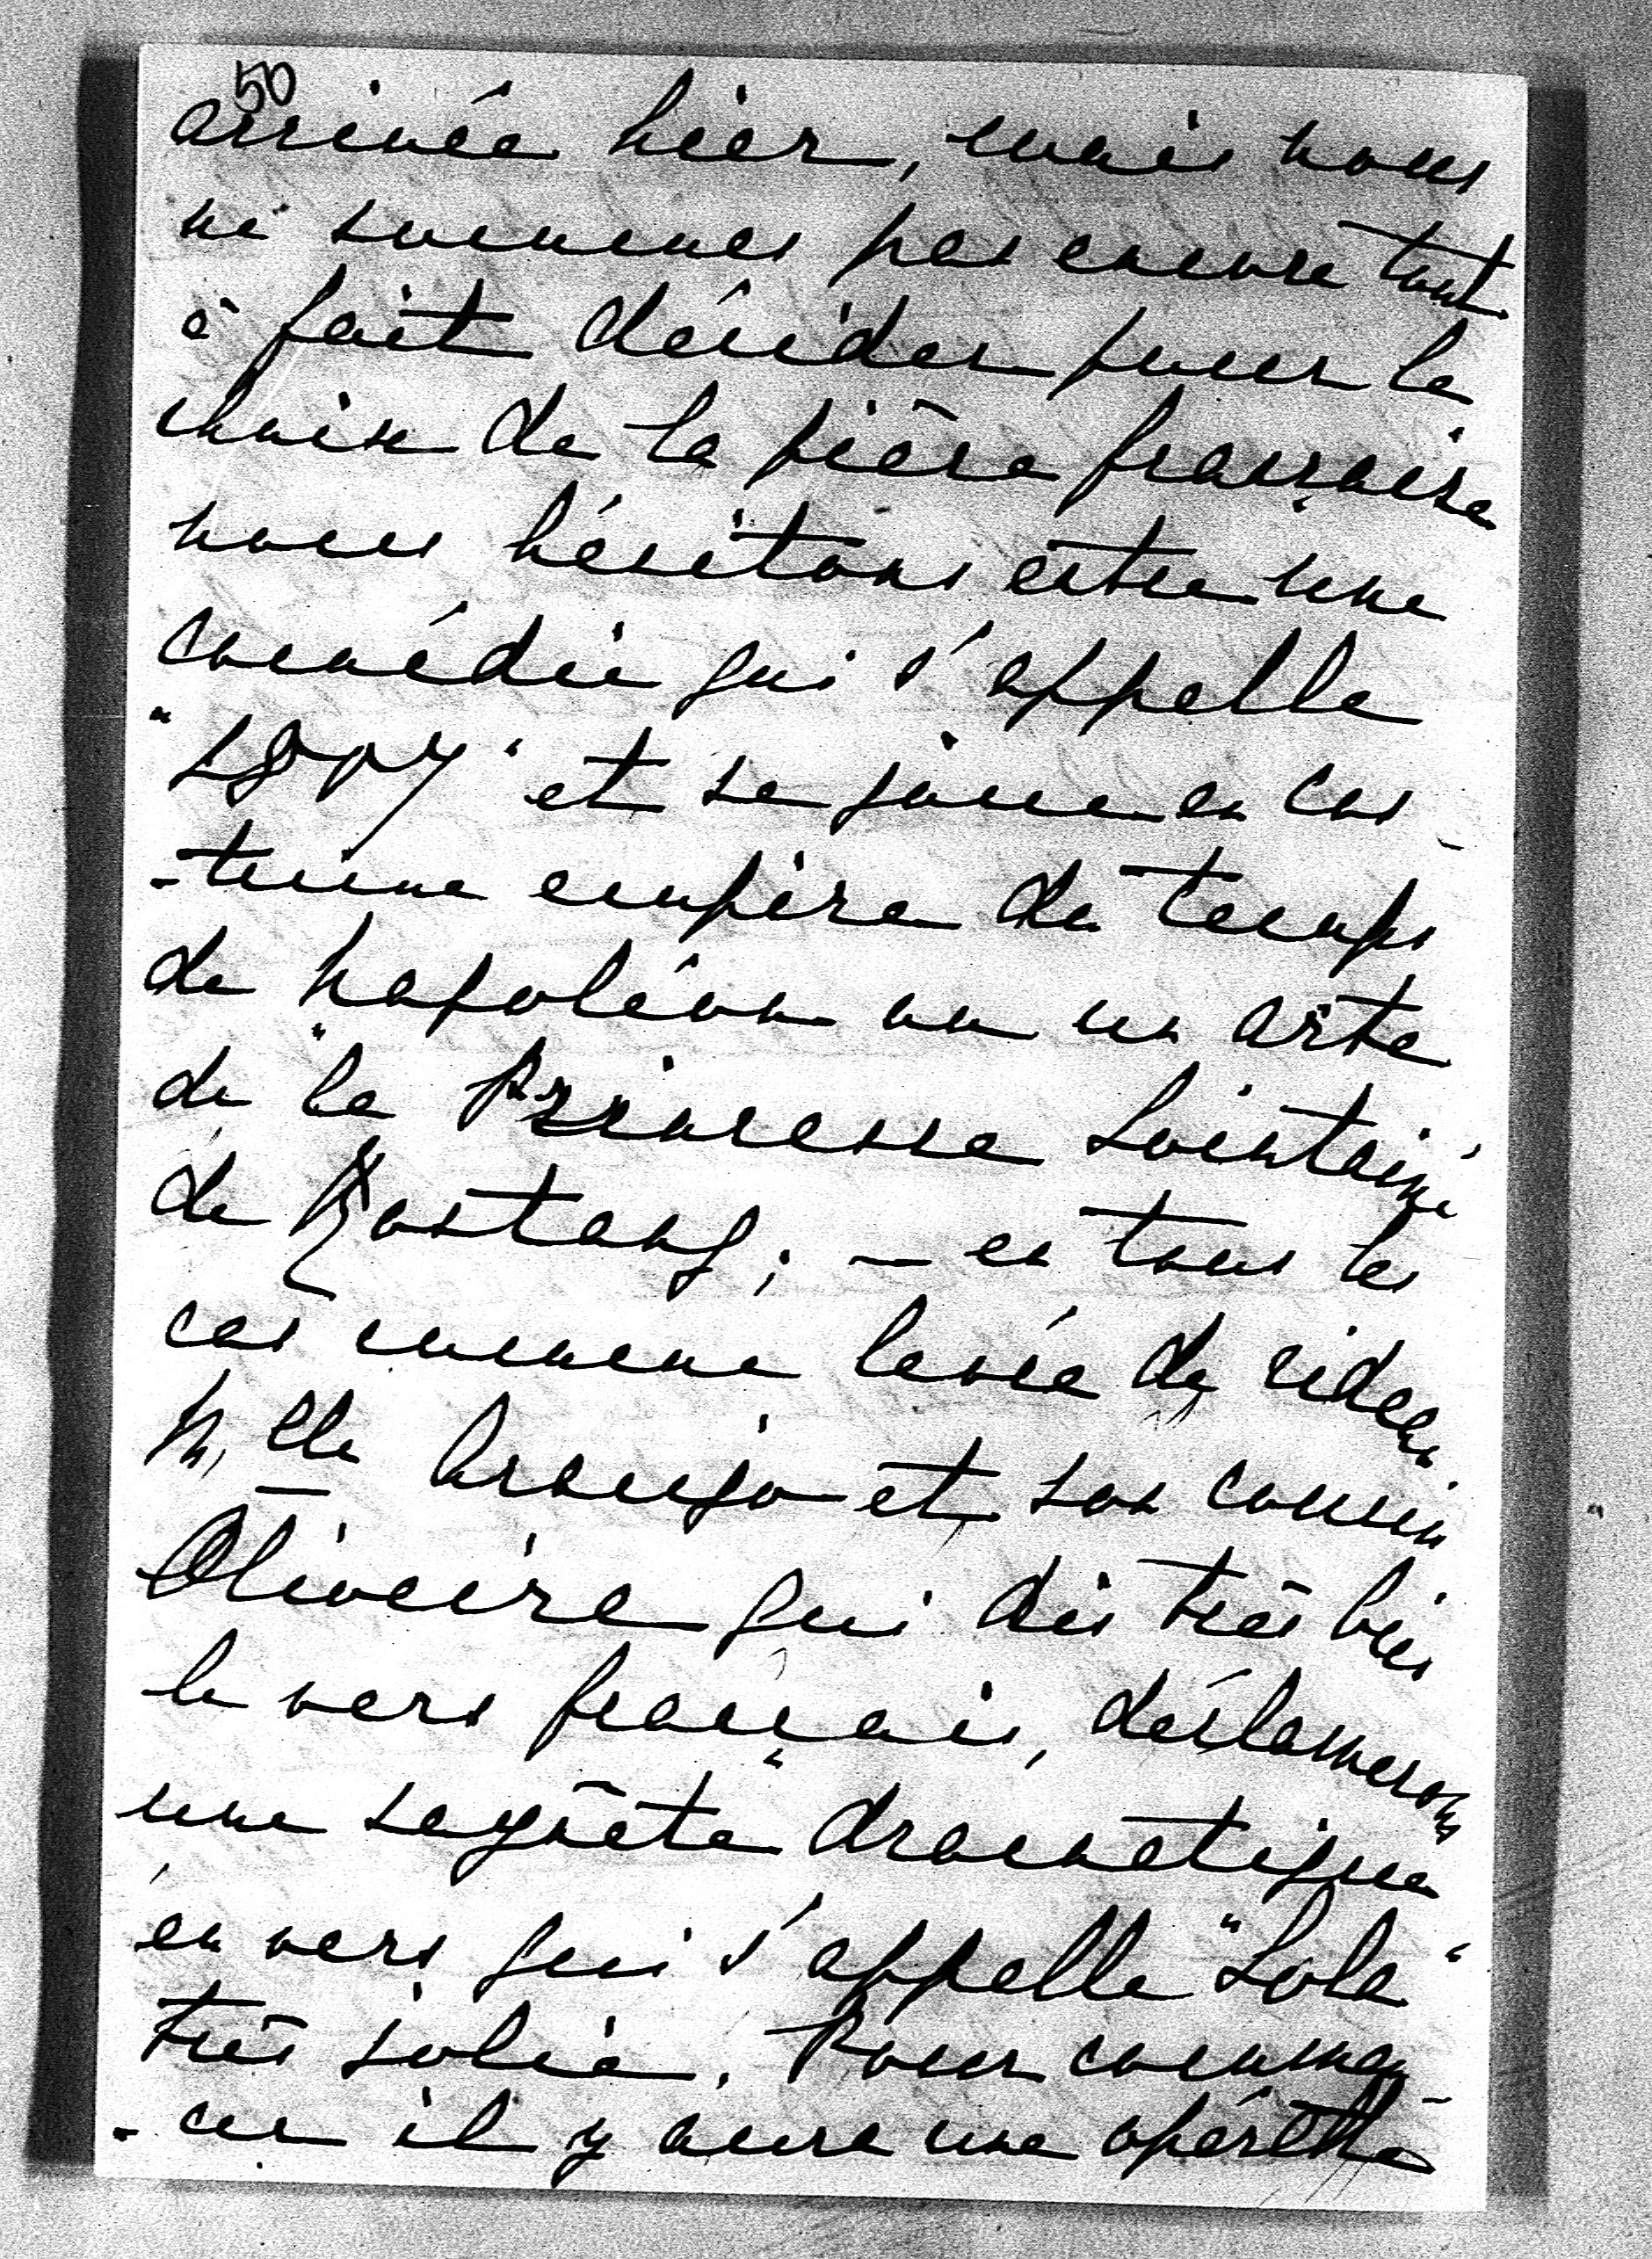 50
arrivée hier, mais nous
ne sommes pas encore tout
à fait décider pour le
choix de la pièce française
nous hésitons entre une
comédie qui s'appelle
"1807" et se joue en cos-
-tume empire du temps
de Napoléon ou un acte
de "la Princesse Lointaine"
de Rostang; – en tous les
cas comme levée de rideau
Melle Araujo et son cousin
Oliveira qui dis très bien
le vers français, déclamerons
une saynète dramatique
en vers qui s'appelle "Lola"
très jolie. Pour commen-
-cer il y aura une opérette